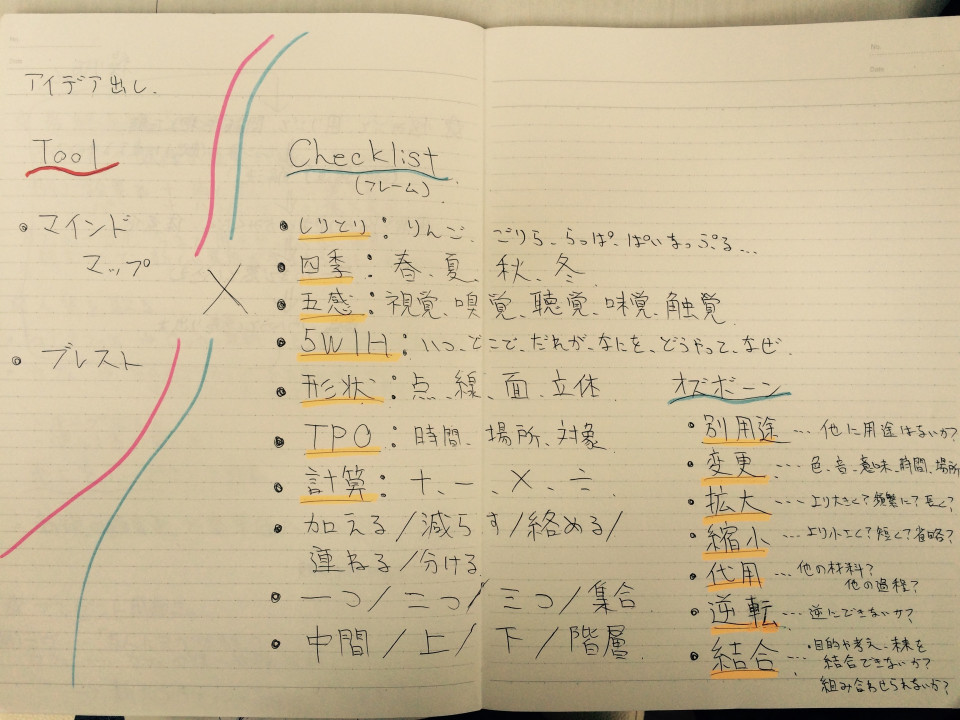 アイデア出し.
Tool
• マインド
マップ
• ブレスト
×
Checklist
(フレーム)
• しりとり：りんご、ごりら、らっぱ、ぱいなっぷる...
• 四季：春、夏、秋、冬
• 五感：視覚、嗅覚、聴覚、味覚、触覚
• 5W1H：いつ、どこで、だれが、なにを、どうやって、なぜ.
• 形状：点、線、面、立体
• TPO：時間、場所、対象
• 計算：＋、－、×、÷
• 加える/減らす/絡める/
重ねる/分ける
• 一つ/二つ/三つ/集合
• 中間/上/下/階層
オズボーン
• 別用途…他に用途はないか?
• 変更…色、音、意味、時間、場所
• 拡大…より大きく?頻繁に?長く?
• 縮小…より小さく?短く?省略?
• 代用…他の材料?
他の過程?
• 逆転…逆にできないか?
• 結合…・目的や考え、未来を
結合できないか?
組み合わせられないか?
No.
Date